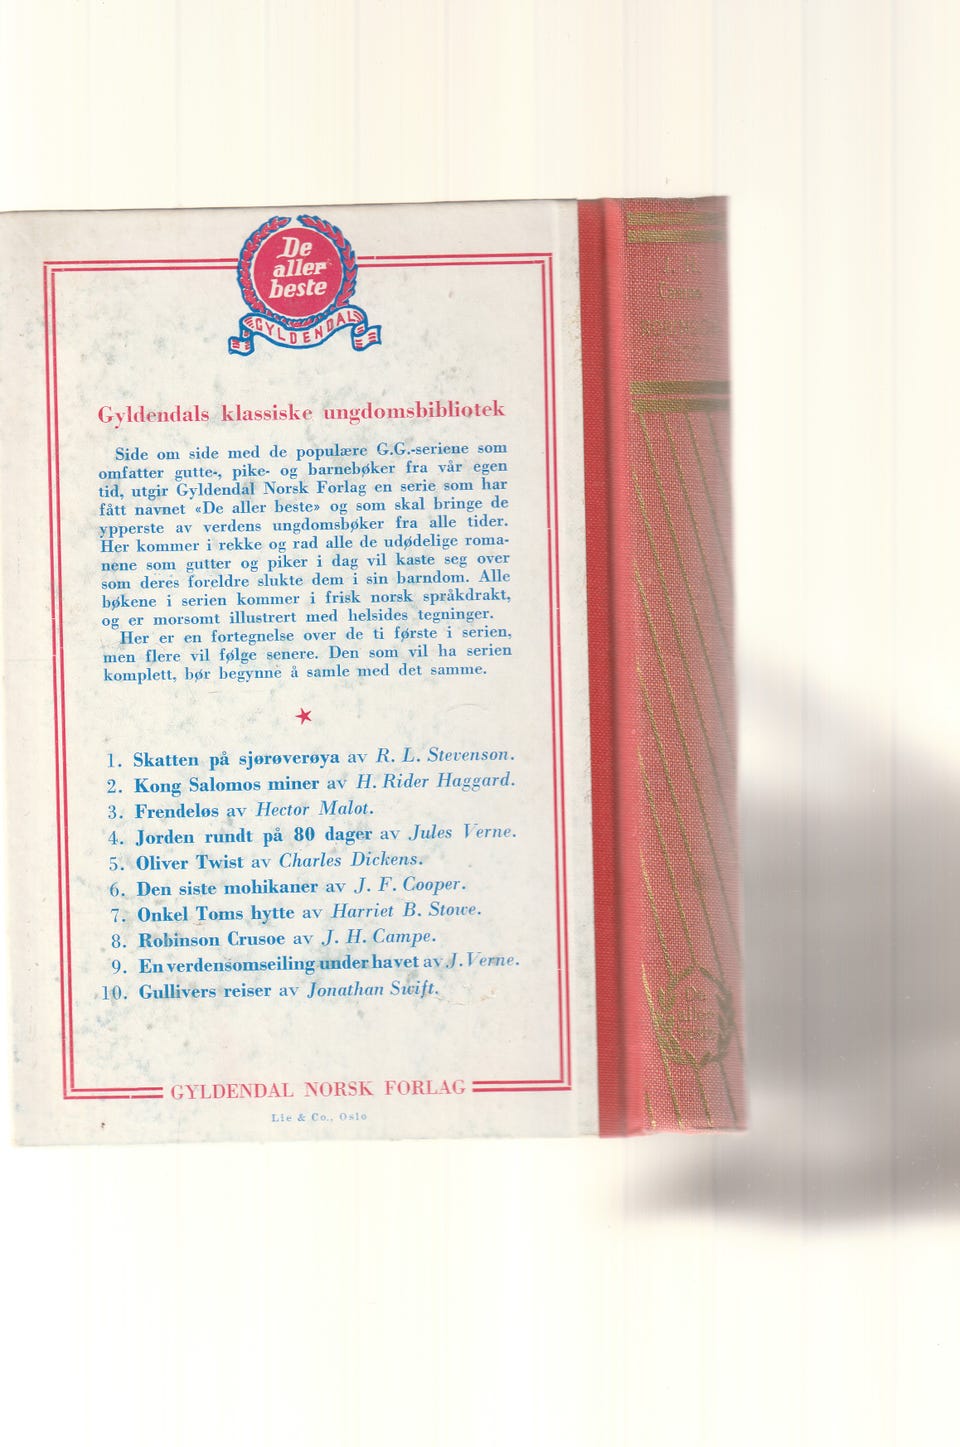 De
aller
beste
GYLDENDAL
Gyldendals klassiske ungdomsbibliotek
Side om side med de populære G.G.-seriene som
omfatter gutte-, pike- og barnebøker fra vår egen
tid, utgir Gyldendal Norsk Forlag en serie som har
fått navnet «De aller beste» og som skal bringe de
ypperste av verdens ungdomsbøker fra alle tider.
Her kommer i rekke og rad alle de udødelige roma-
nene som gutter og piker i dag vil kaste seg over
som deres foreldre slukte dem i sin barndom. Alle
bøkene i serien kommer i frisk norsk språkdrakt,
og er morsomt illustrert med helsides tegninger.
Her er en fortegnelse over de ti første i serien,
men flere vil følge senere. Den som vil ha serien
komplett, bør begynne å samle med det samme.
1. Skatten på sjørøverøya av R. L. Stevenson.
2. Kong Salomos miner av H. Rider Haggard.
3. Frendeløs av Hector Malot.
4. Jorden rundt på 80 dager av Jules Verne.
5. Oliver Twist av Charles Dickens.
6. Den siste mohikaner av J. F. Cooper.
7. Onkel Toms hytte av Harriet B. Stowe.
8. Robinson Crusoe av J. H. Campe.
9. En verdensomseiling under havet av J. Verne.
10. Gullivers reiser av Jonathan Swift.
GYLDENDAL NORSK FORLAG
Lie & Co., Oslo
De
aller
beste